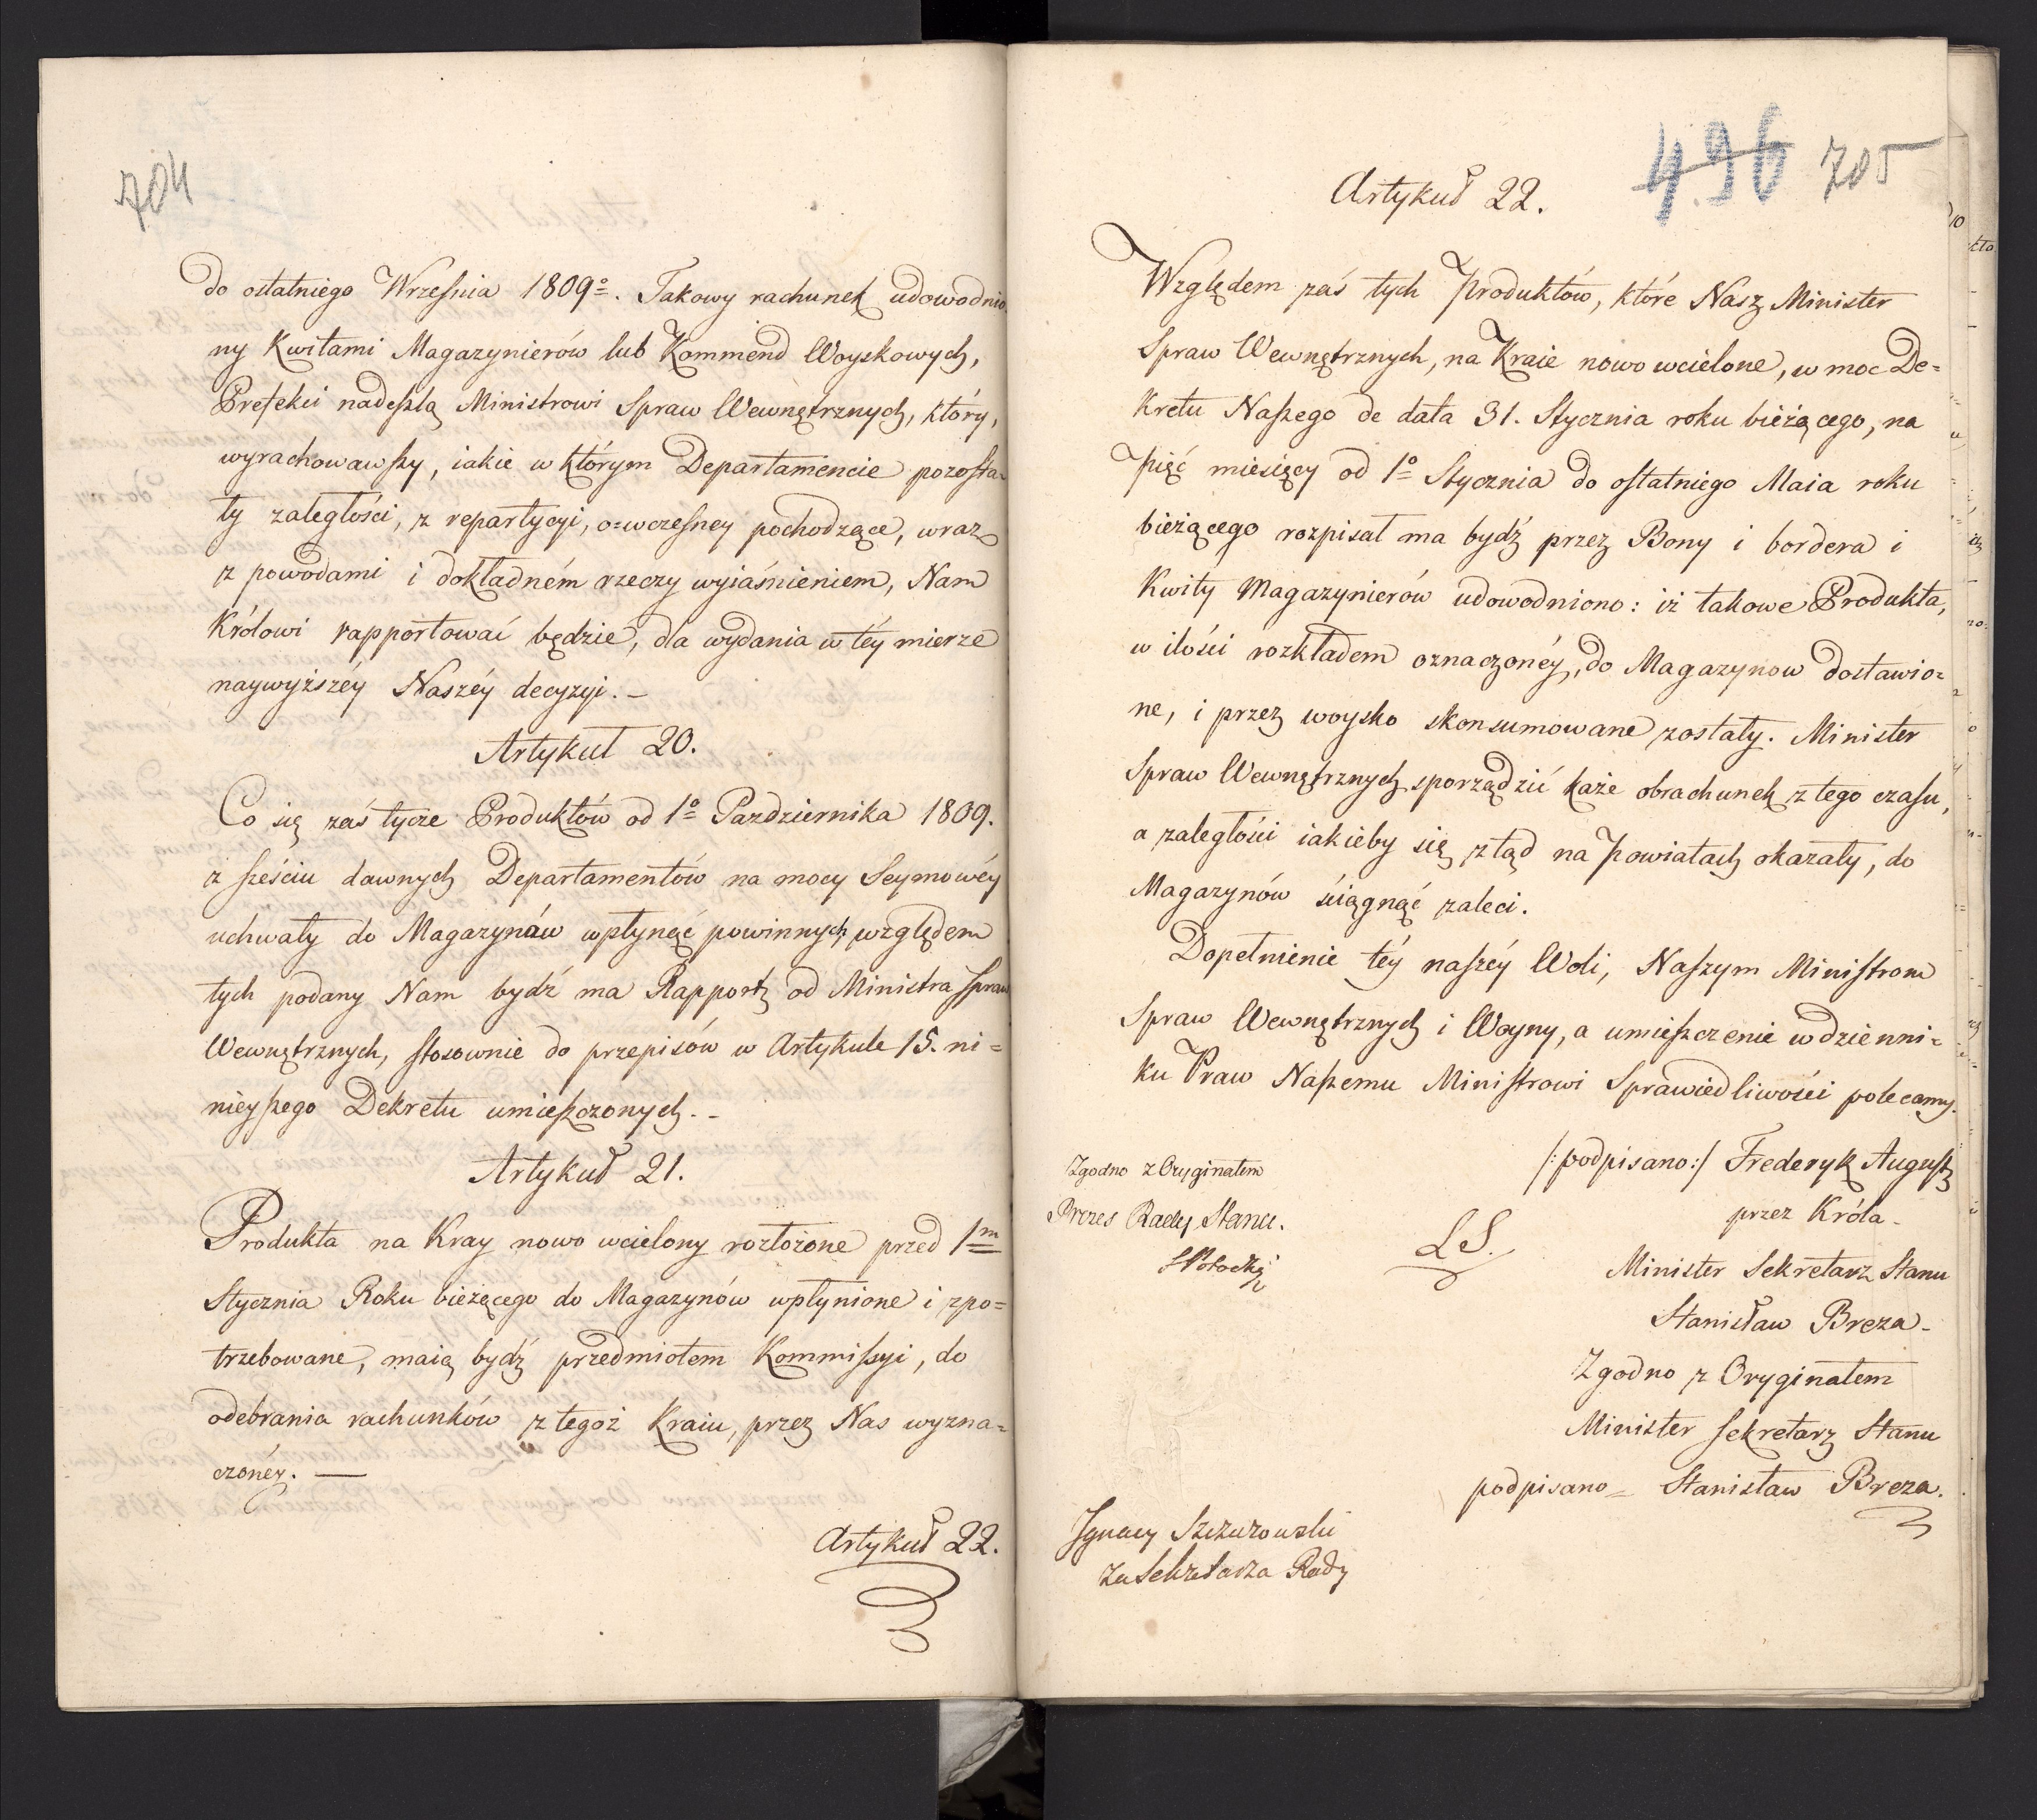 704
do ostatniego Września 1809º. Takowy rachunek udowodnio
ny Kwitami Magazynierów lub Kommend Woyskowych,
Prefekci nadeszlą Ministrowi Spraw Wewnętrznych, który,
wyrachowawszy, iakie w którym Departamencie pozosta-
ły zaległości, z repartycyi, o=wczesney pochodzące, wraz
z powodami i dokładném rzeczy wyiaśnieniem, Nam
Królowi rapportować będzie, dla wydania w téy mierze
naywyższéy Naszéy decyzyi. -
Artykuł 20.
Co się zaś tycze Produktów od 1º Pazdziernika 1809.
z sześciu dawnych Departamentów na mocy Seymowéy
uchwały do Magazynów wpłynąć powinnych, względem
tych podany Nam bydź ma Rapport od Ministra Spraw
Wewnętrznych, stosownie do przepisów w Artykule 15. ni=
nieyszego Dekretu umieszczonych. -
Artykuł 21.
Produkta na Kray nowo wcielony rozłożone przed 1m
Stycznia Roku bieżącego do Magazynów wpłynione i zpo=
trzebowane, maią bydź przedmiotem Kommissyi, do
odebrania rachunków z tegoż Kraiu, przez Nas wyzna=
czonéy. —
Artykuł 22.
496 705
Artykuł 22.
Względem zaś tych Produktów, które Nasz Minister
Spraw Wewnętrznych, na Kraie nowo wcielone, w moc De=
kretu Naszego de data 31. Stycznia roku bieżącego, na
pięć miesięcy od 1º Stycznia do ostatniego Maia roku
bieżącego rozpisał ma bydź przez Bony i bordera i
Kwity Magazynierów udowodniono: iż takowe Produkta,
w ilości rozkładem oznaczonéy, do Magazynow dostawio=
ne, i przez woysko skonsumowane zostały. Minister
Spraw Wewnętrznych sporządzić każe obrachunek z tego czasu,
a zaległości iakieby się ztąd na Powiatach okazały, do
Magazynów ściągnąć zaleci.
Dopełnienie téy naszéy Woli, Naszym Ministrom
Spraw Wewnętrznych i Woyny, a umieszczenie w dzienni=
ku Praw Naszemu Ministrowi Sprawiedliwości polecamy.
/:podpisano:/ Frederyk August
przez Króla -
Minister Sekretarz Stanu
Stanisław Breza -
Zgodno z Oryginałem
Minister Sekretarz Stanu
podpisano = Stanisław Breza.
LS.
Zgodno z Oryginałem
Prezes Rady Stanu.
SPotocki
Ignacy Szczurowski
za Sekretarza Rady